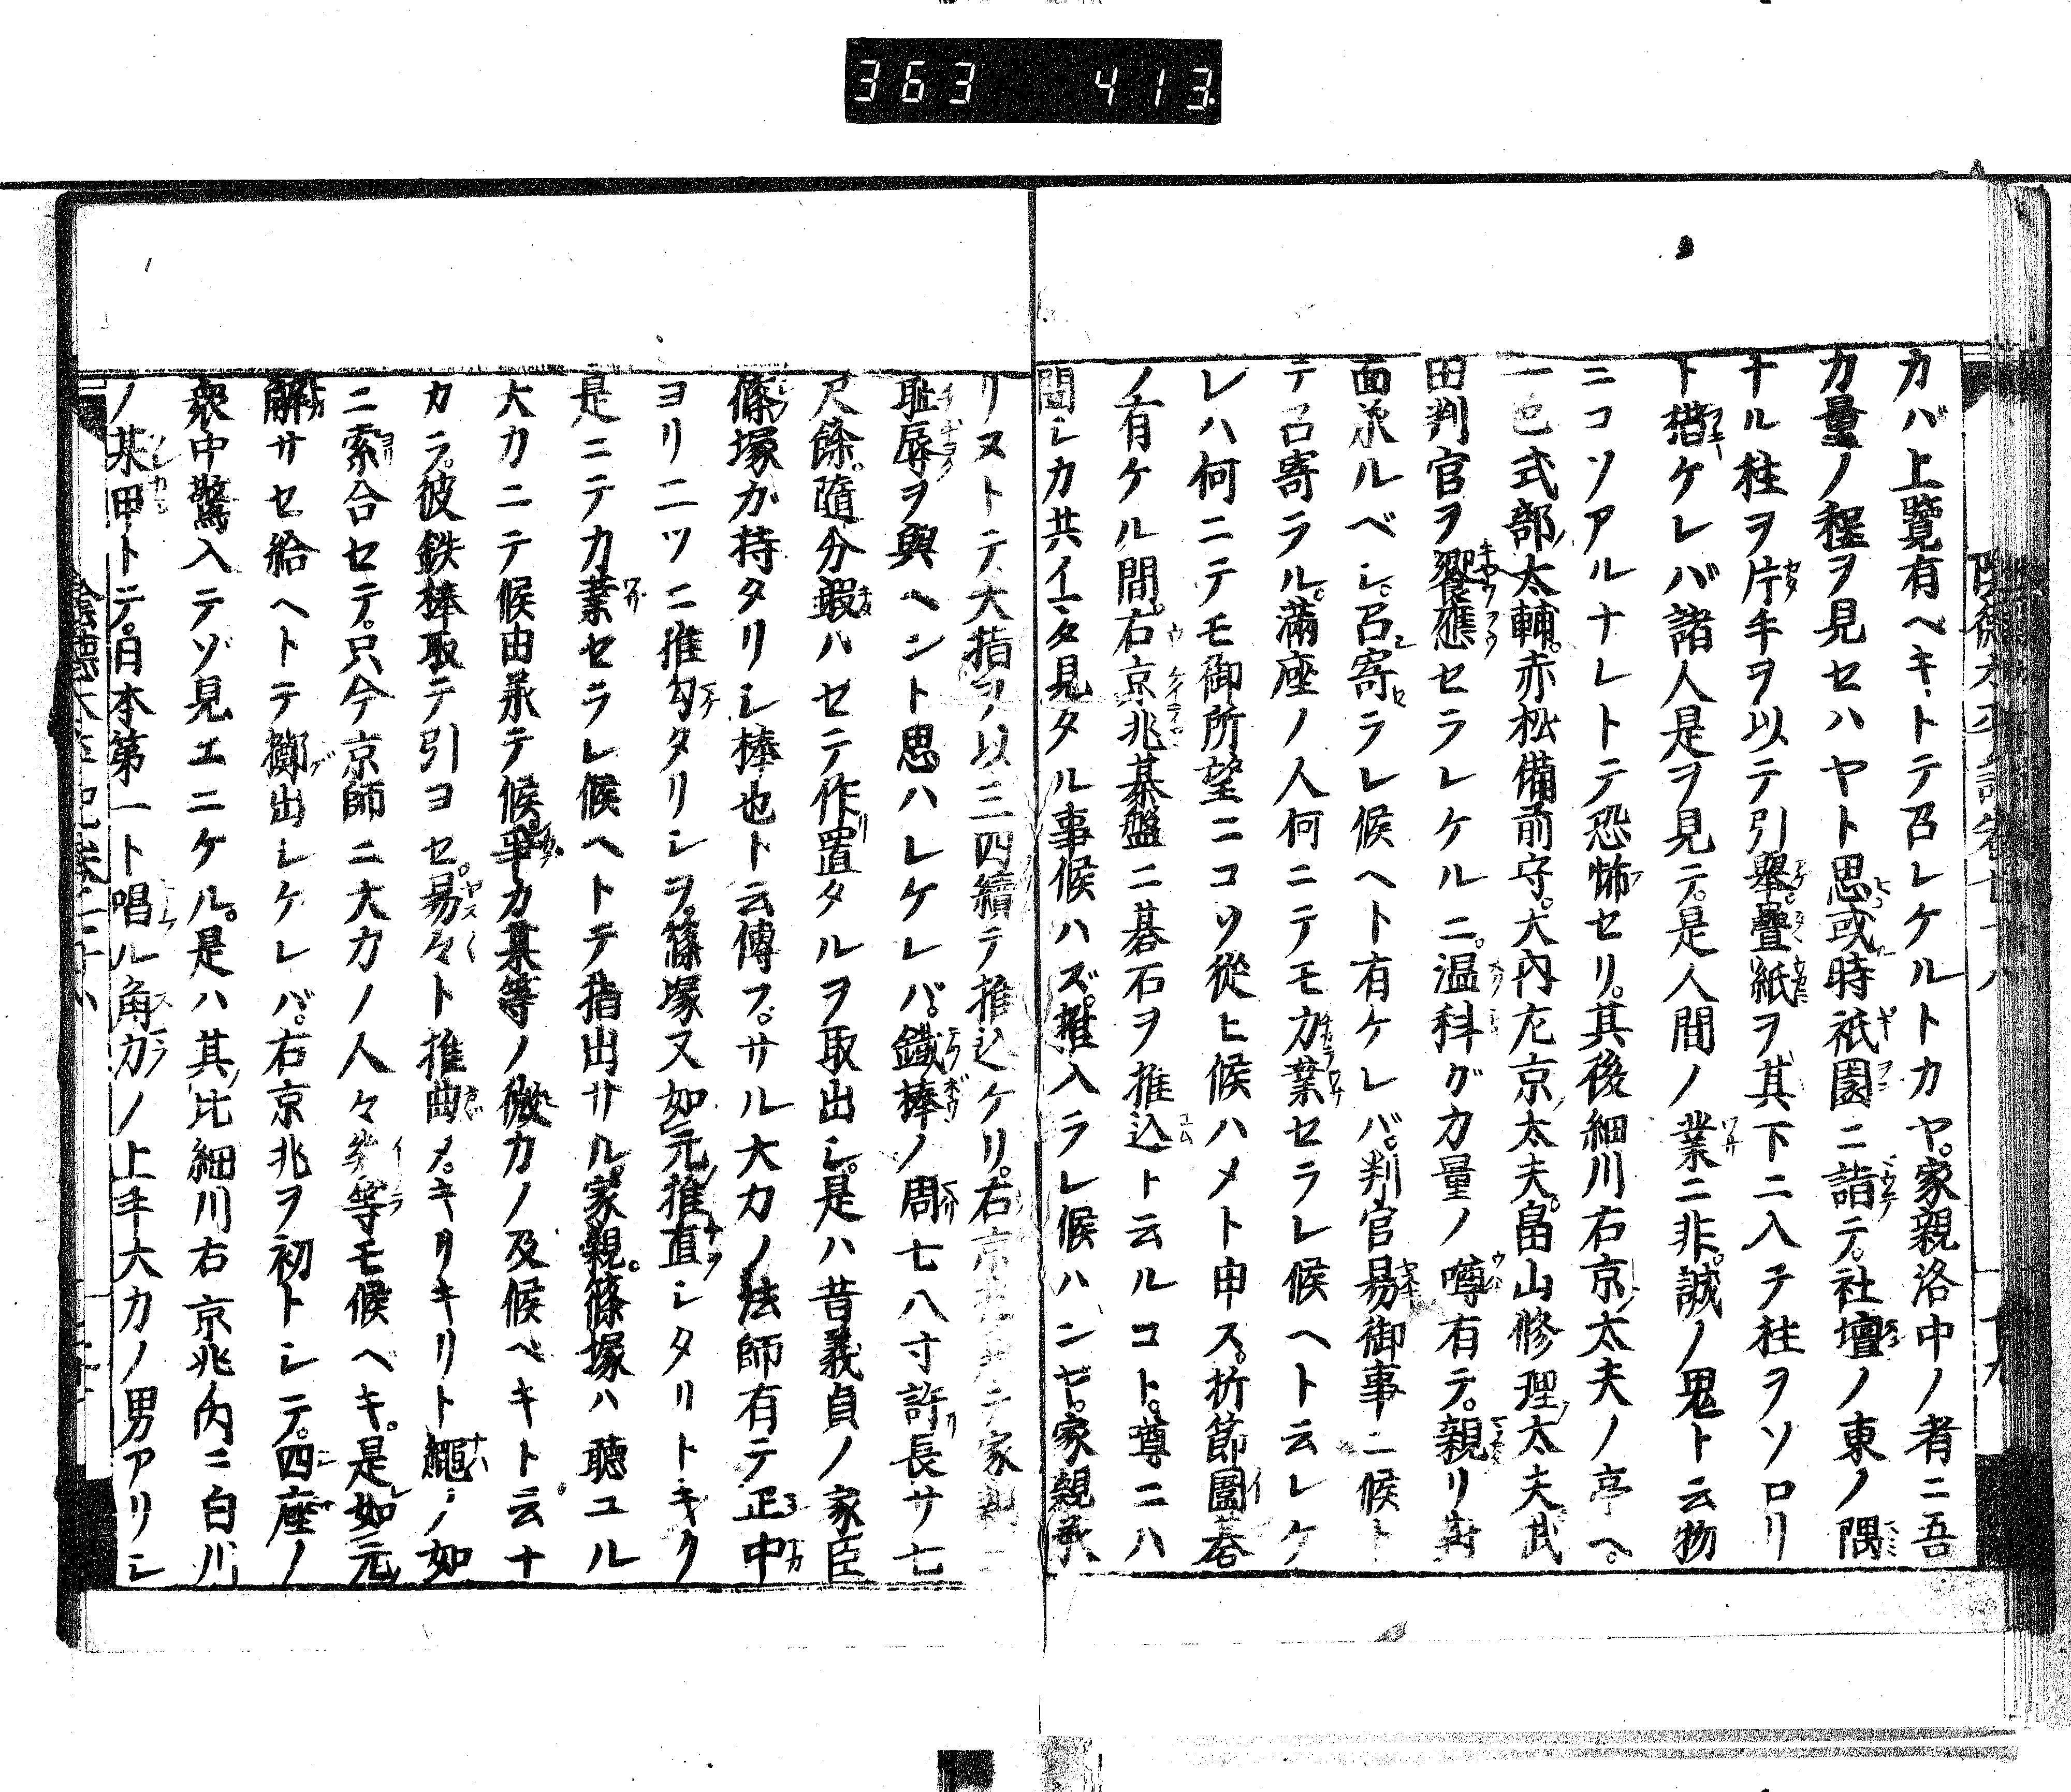 363 413
カバ上覽有ベキトテ召レケルトカヤ。家親洛中ノ者ニ吾
力量ノ程ヲ見セハヤト思。或時祇園ニ詣テ。社壇ノ東ノ隅
ナル柱ヲ片手ヲ以テ引擧。疊紙ヲ其下ニ入テ柱ヲソロリ
トケレバ諸人是ヲ見テ。是人間ノ業ニ非。誠ノ鬼ト云物
ニコソアルナレトテ恐怖セリ。其後細川右京太夫ノ亭ヘ。
一色式部太輔。赤松備前守。大内左京太夫。畠山修理太夫。武
田判官ヲ饗應セラレケルニ。温科ガ力量ノ噂有テ。親リ對
面承ルベシ。召寄ラレ候ヘト有ケレバ。判官易御事ニ候ト
テ召寄ラル。滿座ノ人何ニテモ力業セラレ候ヘト云レケ
レハ何ニテモ御所望ニコソ從ヒ候ハメト申ス。折節圍碁
ノ有ケル間。右京兆棊盤ニ碁石ヲ推込ト云ルコト。噂ニハ
聞シカ共イマタ見タル事候ハズ。推入ラレ候ハンヤ。家親承
リヌトテ大指ヲ以三四續テ推込ケリ。右京兆ニ家親ニ
耻辱ヲ與ヘント思ハレケレバ。鐵棒ノ周七八寸許長サ七
尺餘。隨分鍜ハセテ作置タルヲ取出シ。是ハ昔義貞ノ家臣
篠塚ガ持タリシ棒也ト云傳フ。サル大力ノ法師有テ正中
ヨリ二ツニ推勾タリシヲ。篠塚又如元推直シタリトキク
是ニテ力業セラレ候ヘトテ指出サル。家親。篠塚ハ聽ユル
大力ニテ候由承テ候。爭カ某等ノ微力ノ及候ベキト云ナ
カラ。彼鉄棒取テ引ヨセ。易々ト推曲メ。キリキリト繩ノ如
ニ索合セテ。只今京師ニ大力ノ人々等モ候ベキ。是如元
解サセ給ヘトテ擲出シケレバ。右京兆ヲ初トシテ。四座ノ
衆中驚入テゾ見エニケル。是ハ其比細川右京兆ノ内ニ白川
ノ某甲トテ。日本第一ト唱ル角力ノ上手大力ノ男アリシ